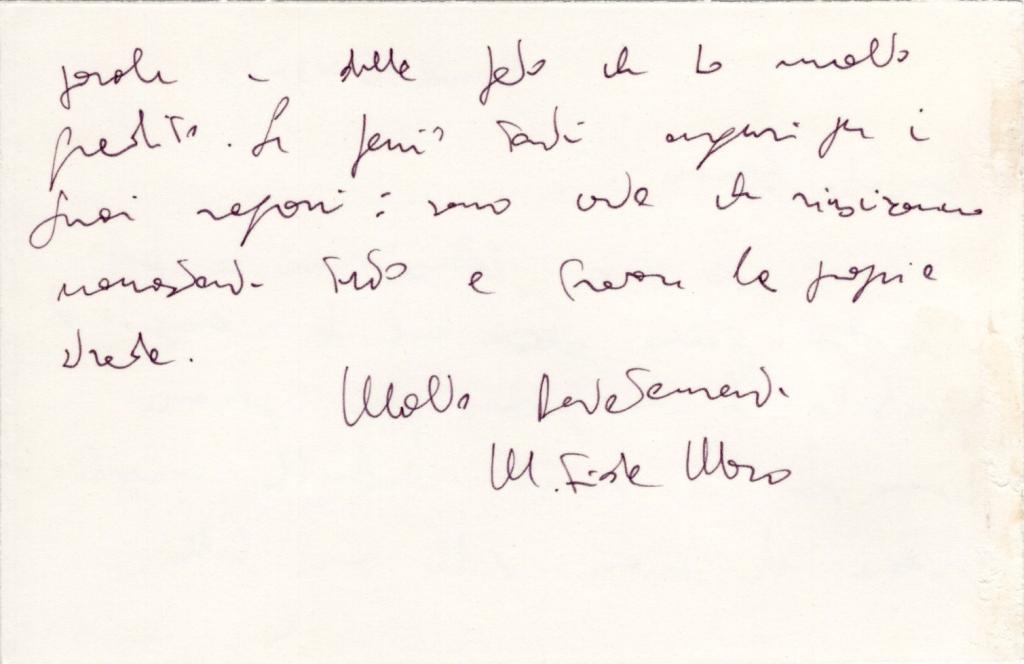 parole e della foto che ho molto
gradito. Le farei tanti auguri per i
suoi ragazzi: sono certa che riusciranno
nonostante tutto a trovare la propria
strada.
Molto cordialmente
M. Fida Moro